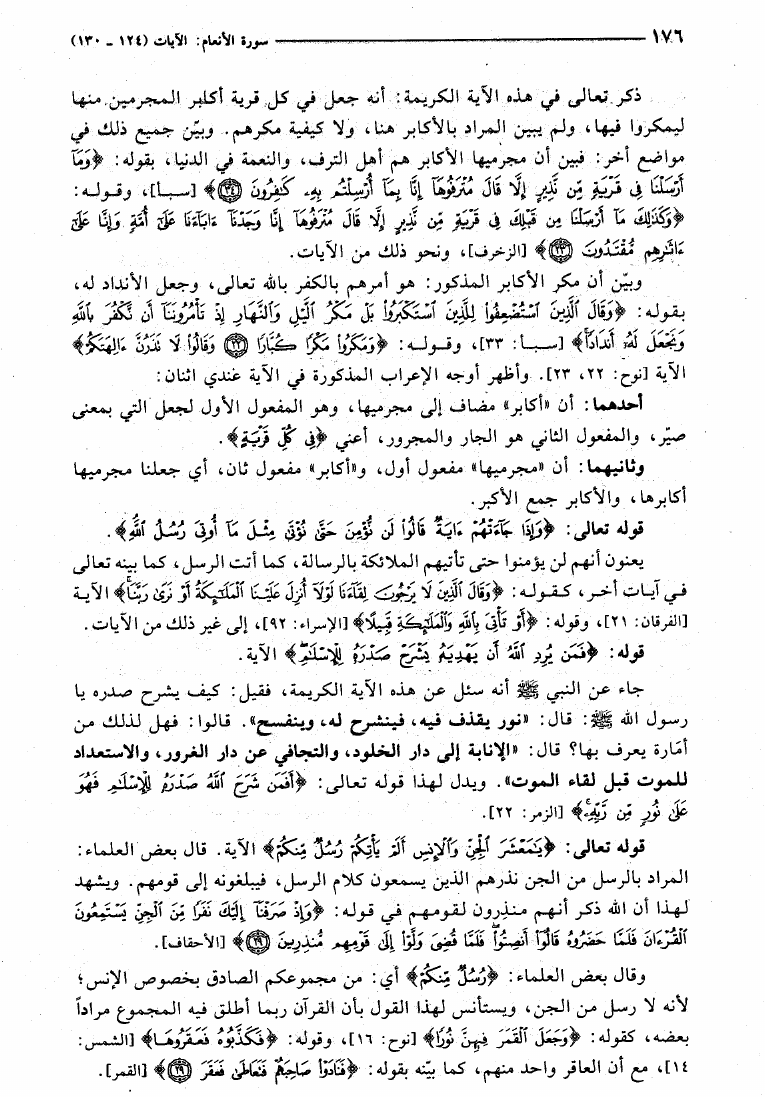 ١٧٦ سورة الأنعام: الآيات (١٢٤ - ١٣٠)
ذكر تعالى في هذه الآية الكريمة: أنه جعل في كل قرية أكابر المجرمين منها
ليمكروا فيها، ولم يبين المراد بالأكابر هنا، ولا كيفية مكرهم. وبيّن جميع ذلك في
مواضع أخر: فبين أن مجرميها الأكابر هم أهل الترف، والنعمة في الدنيا، بقوله: ﴿وَمَآ
أَرْسَلْنَا فِى قَرْيَةٍ مِّن نَّذِيرٍ إِلَّا قَالَ مُتْرَفُوهَآ إِنَّا بِمَآ أُرْسِلْتُم بِهِۦ كَـٰفِرُونَ ﴿٣٤﴾﴾ [سبأ]، وقوله:
﴿وَكَذَٰلِكَ مَآ أَرْسَلْنَا مِن قَبْلِكَ فِى قَرْيَةٍ مِّن نَّذِيرٍ إِلَّا قَالَ مُتْرَفُوهَآ إِنَّا وَجَدْنَآ ءَابَآءَنَا عَلَىٰٓ أُمَّةٍ وَإِنَّا عَلَىٰٓ
ءَاثَـٰرِهِم مُّقْتَدُونَ ﴿٢٣﴾﴾ [الزخرف]، ونحو ذلك من الآيات.
وبيّن أن مكر الأكابر المذكور: هو أمرهم بالكفر بالله تعالى، وجعل الأنداد له،
بقوله: ﴿وَقَالَ ٱلَّذِينَ ٱسْتُضْعِفُوا۟ لِلَّذِينَ ٱسْتَكْبَرُوا۟ بَلْ مَكْرُ ٱلَّيْلِ وَٱلنَّهَارِ إِذْ تَأْمُرُونَنَآ أَن نَّكْفُرَ بِٱللَّهِ
وَنَجْعَلَ لَهُۥٓ أَندَادًا﴾ [سبأ: ٣٣]، وقوله: ﴿وَمَكَرُوا۟ مَكْرًا كُبَّارًا ﴿٢٢﴾ وَقَالُوا۟ لَا تَذَرُنَّ ءَالِهَتَكُمْ﴾
الآية [نوح: ٢٢، ٢٣]. وأظهر أوجه الإعراب المذكورة في الآية عندي اثنان:
أحدهما: أن «أكابر» مضاف إلى مجرميها، وهو المفعول الأول لجعل التي بمعنى
صيّر، والمفعول الثاني هو الجار والمجرور، أعني ﴿فِى كُلِّ قَرْيَةٍ﴾.
وثانيهما: أن «مجرميها» مفعول أول، و«أكابر» مفعول ثان، أي جعلنا مجرميها
أكابرها، والأكابر جمع الأكبر.
قوله تعالى: ﴿وَإِذَا جَآءَتْهُمْ ءَايَةٌ قَالُوا۟ لَن نُّؤْمِنَ حَتَّىٰ نُؤْتَىٰ مِثْلَ مَآ أُوتِىَ رُسُلُ ٱللَّهِ﴾.
يعنون أنهم لن يؤمنوا حتى تأتيهم الملائكة بالرسالة، كما أتت الرسل، كما بينه تعالى
في آيات أخر، كقوله: ﴿وَقَالَ ٱلَّذِينَ لَا يَرْجُونَ لِقَآءَنَا لَوْلَآ أُنزِلَ عَلَيْنَا ٱلْمَلَـٰٓئِكَةُ أَوْ نَرَىٰ رَبَّنَا﴾ الآية
[الفرقان: ٢١]، وقوله: ﴿أَوْ تَأْتِىَ بِٱللَّهِ وَٱلْمَلَـٰٓئِكَةِ قَبِيلًا﴾ [الإسراء: ٩٢]، إلى غير ذلك من الآيات.
قوله: ﴿فَمَن يُرِدِ ٱللَّهُ أَن يَهْدِيَهُۥ يَشْرَحْ صَدْرَهُۥ لِلْإِسْلَـٰمِ﴾ الآية.
جاء عن النبي ﷺ أنه سئل عن هذه الآية الكريمة، فقيل: كيف يشرح صدره يا
رسول الله ﷺ: قال: «نور يقذف فيه، فينشرح له، وينفسح». قالوا: فهل لذلك من
أمَارة يعرف بها؟ قال: «الإنابة إلى دار الخلود، والتجافي عن دار الغرور، والاستعداد
للموت قبل لقاء الموت». ويدل لهذا قوله تعالى: ﴿أَفَمَن شَرَحَ ٱللَّهُ صَدْرَهُۥ لِلْإِسْلَـٰمِ فَهُوَ
عَلَىٰ نُورٍ مِّن رَّبِّهِۦ﴾ [الزمر: ٢٢].
قوله تعالى: ﴿يَـٰمَعْشَرَ ٱلْجِنِّ وَٱلْإِنسِ أَلَمْ يَأْتِكُمْ رُسُلٌ مِّنكُمْ﴾ الآية. قال بعض العلماء:
المراد بالرسل من الجن نذرهم الذين يسمعون كلام الرسل، فيبلغونه إلى قومهم. ويشهد
لهذا أن الله ذكر أنهم منذرون لقومهم في قوله: ﴿وَإِذْ صَرَفْنَآ إِلَيْكَ نَفَرًا مِّنَ ٱلْجِنِّ يَسْتَمِعُونَ
ٱلْقُرْءَانَ فَلَمَّا حَضَرُوهُ قَالُوٓا۟ أَنصِتُوا۟ فَلَمَّا قُضِىَ وَلَّوْا۟ إِلَىٰ قَوْمِهِم مُّنذِرِينَ ﴿٢٩﴾﴾ [الأحقاف].
وقال بعض العلماء: ﴿رُسُلٌ مِّنكُمْ﴾ أي: من مجموعكم الصادق بخصوص الإنس؛
لأنه لا رسل من الجن، ويستأنس لهذا القول بأن القرآن ربما أطلق فيه المجموع مراداً
بعضه، كقوله: ﴿وَجَعَلَ ٱلْقَمَرَ فِيهِنَّ نُورًا﴾ [نوح: ١٦]، وقوله: ﴿فَكَذَّبُوهُ فَعَقَرُوهَا﴾ [الشمس:
١٤]، مع أن العاقر واحد منهم، كما بيّنه بقوله: ﴿فَنَادَوْا۟ صَاحِبَهُمْ فَتَعَاطَىٰ فَعَقَرَ ﴿٢٩﴾﴾ [القمر].